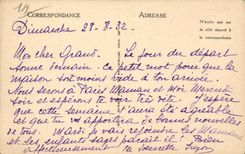 CORRESPONDANCE
ADRESSE
N'écrire que sur
le côté réservé à
la correspondance
Dimanche 28-8-32
Mon cher Grand. Le jour du départ
sonne demain. Ce petit mot pour que la
maison soit moins vide à ton arrivée.
Nous serons à Paris Maman et Moi Mercredi
soir et espérons te voir
que cette semaine t'aura été agréable
et que tu apportera de bonnes nouvelles
de tous. Mardi je vais rejoindre
et. Les enfants sages paraît-il. Bien
affectueusement ta